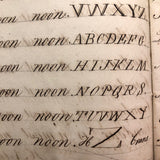 oon noon. VWXYZ
oon noon. ABCDEFG
oon noon. HIJKLM
oon noon. NOPQRS
oon noon. TUVWXY
oon noon. Z